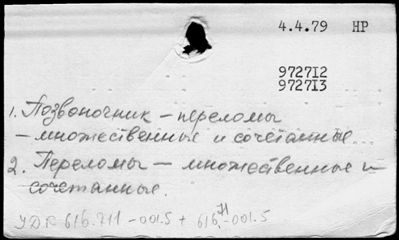 4.4.79 НР
972712
972713
1. Позвоночник – переломы
– множественные и сочетанные...
2. Переломы – множественные и
сочетанные.
УДК 616.711-001.5 + 616.71-001.5